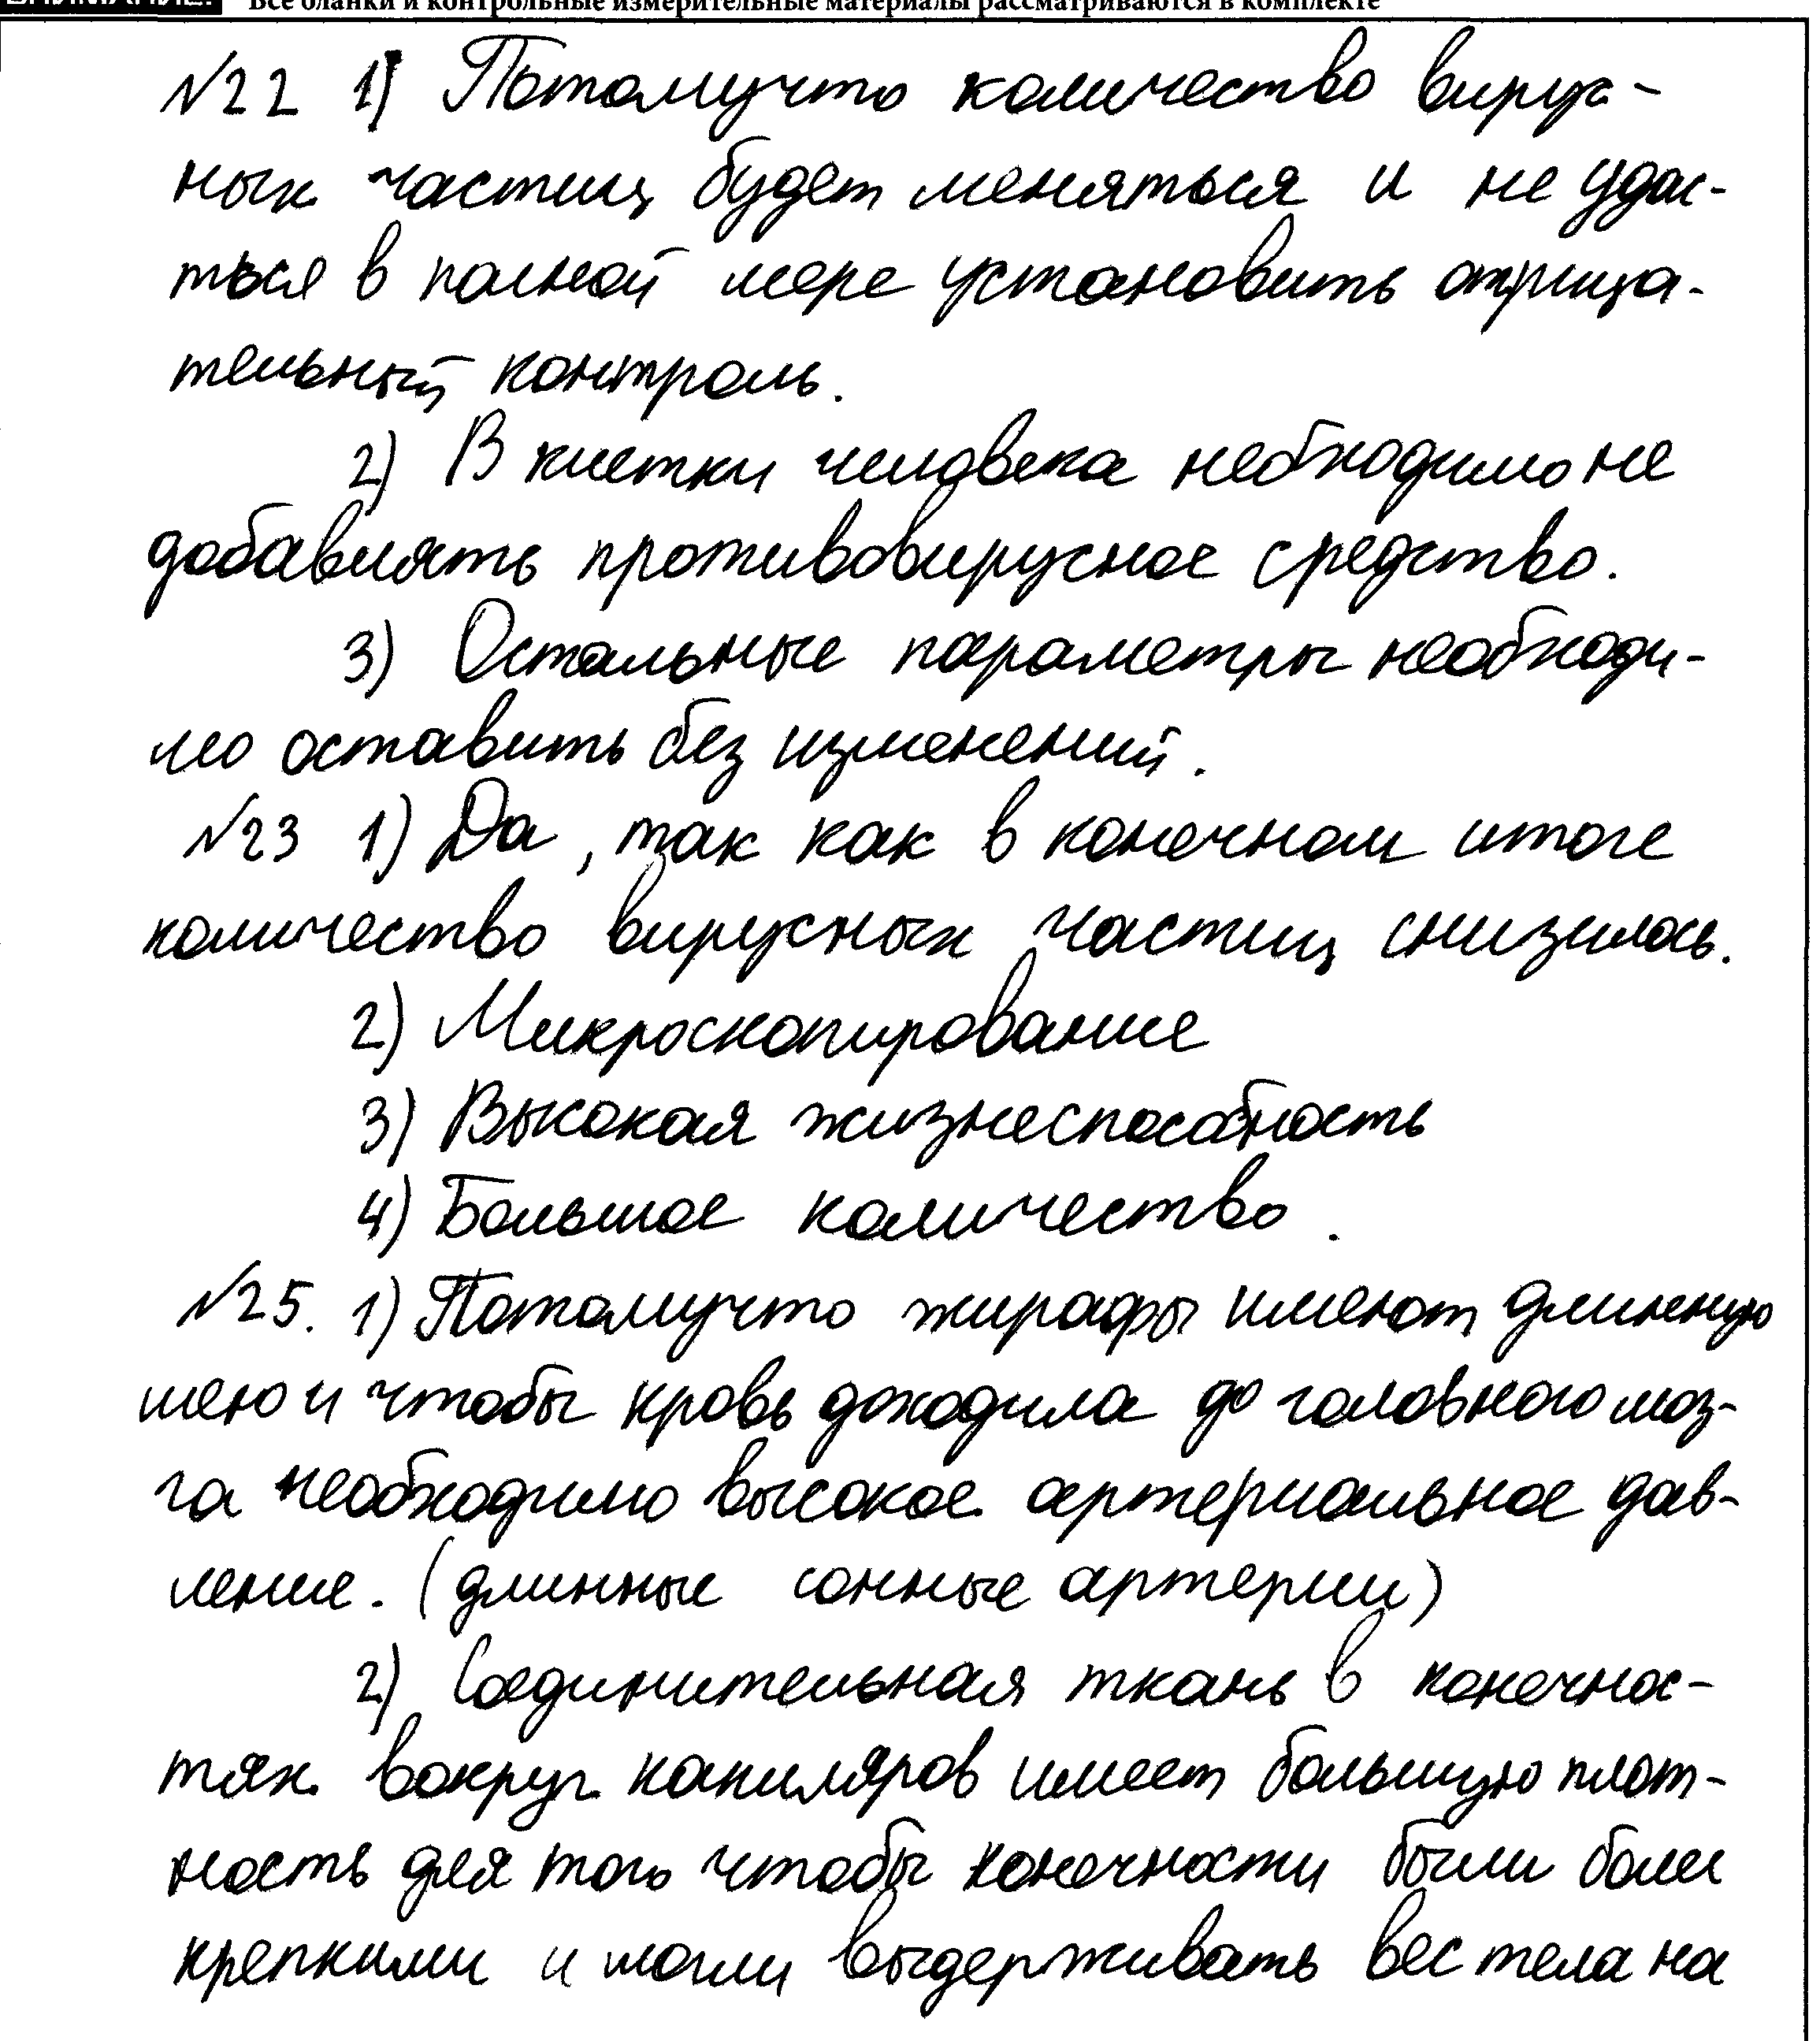 Все бланки и контрольные измерительные материалы рассматриваются в комплекте
№22 1) Потомучто количество вирус-
ных частиц будет меняться и не удас-
ться в полной мере установить отрица-
тельный контроль.
2) В клетки человека необходимо не
добавлять противовирусное средство.
3) Остальные параметры необходи-
мо оставить без изменений.
№23 1) Да, так как в конечном итоге
количество вирусных частиц снизилось.
2) Микроскопирование
3) Высокая жизнеспособность
4) Большое количество.
№25. 1) Потомучто жирафы имеют длинную
шею и чтобы кровь доходила до головного моз-
га необходимо высокое артериальное дав-
ление. (длинные сонные артерии)
2) Соединительная ткань в конечнос-
тях вокруг капиляров имеет большую плот-
ность для того чтобы конечности были более
крепкими и могли выдерживать вес тела на